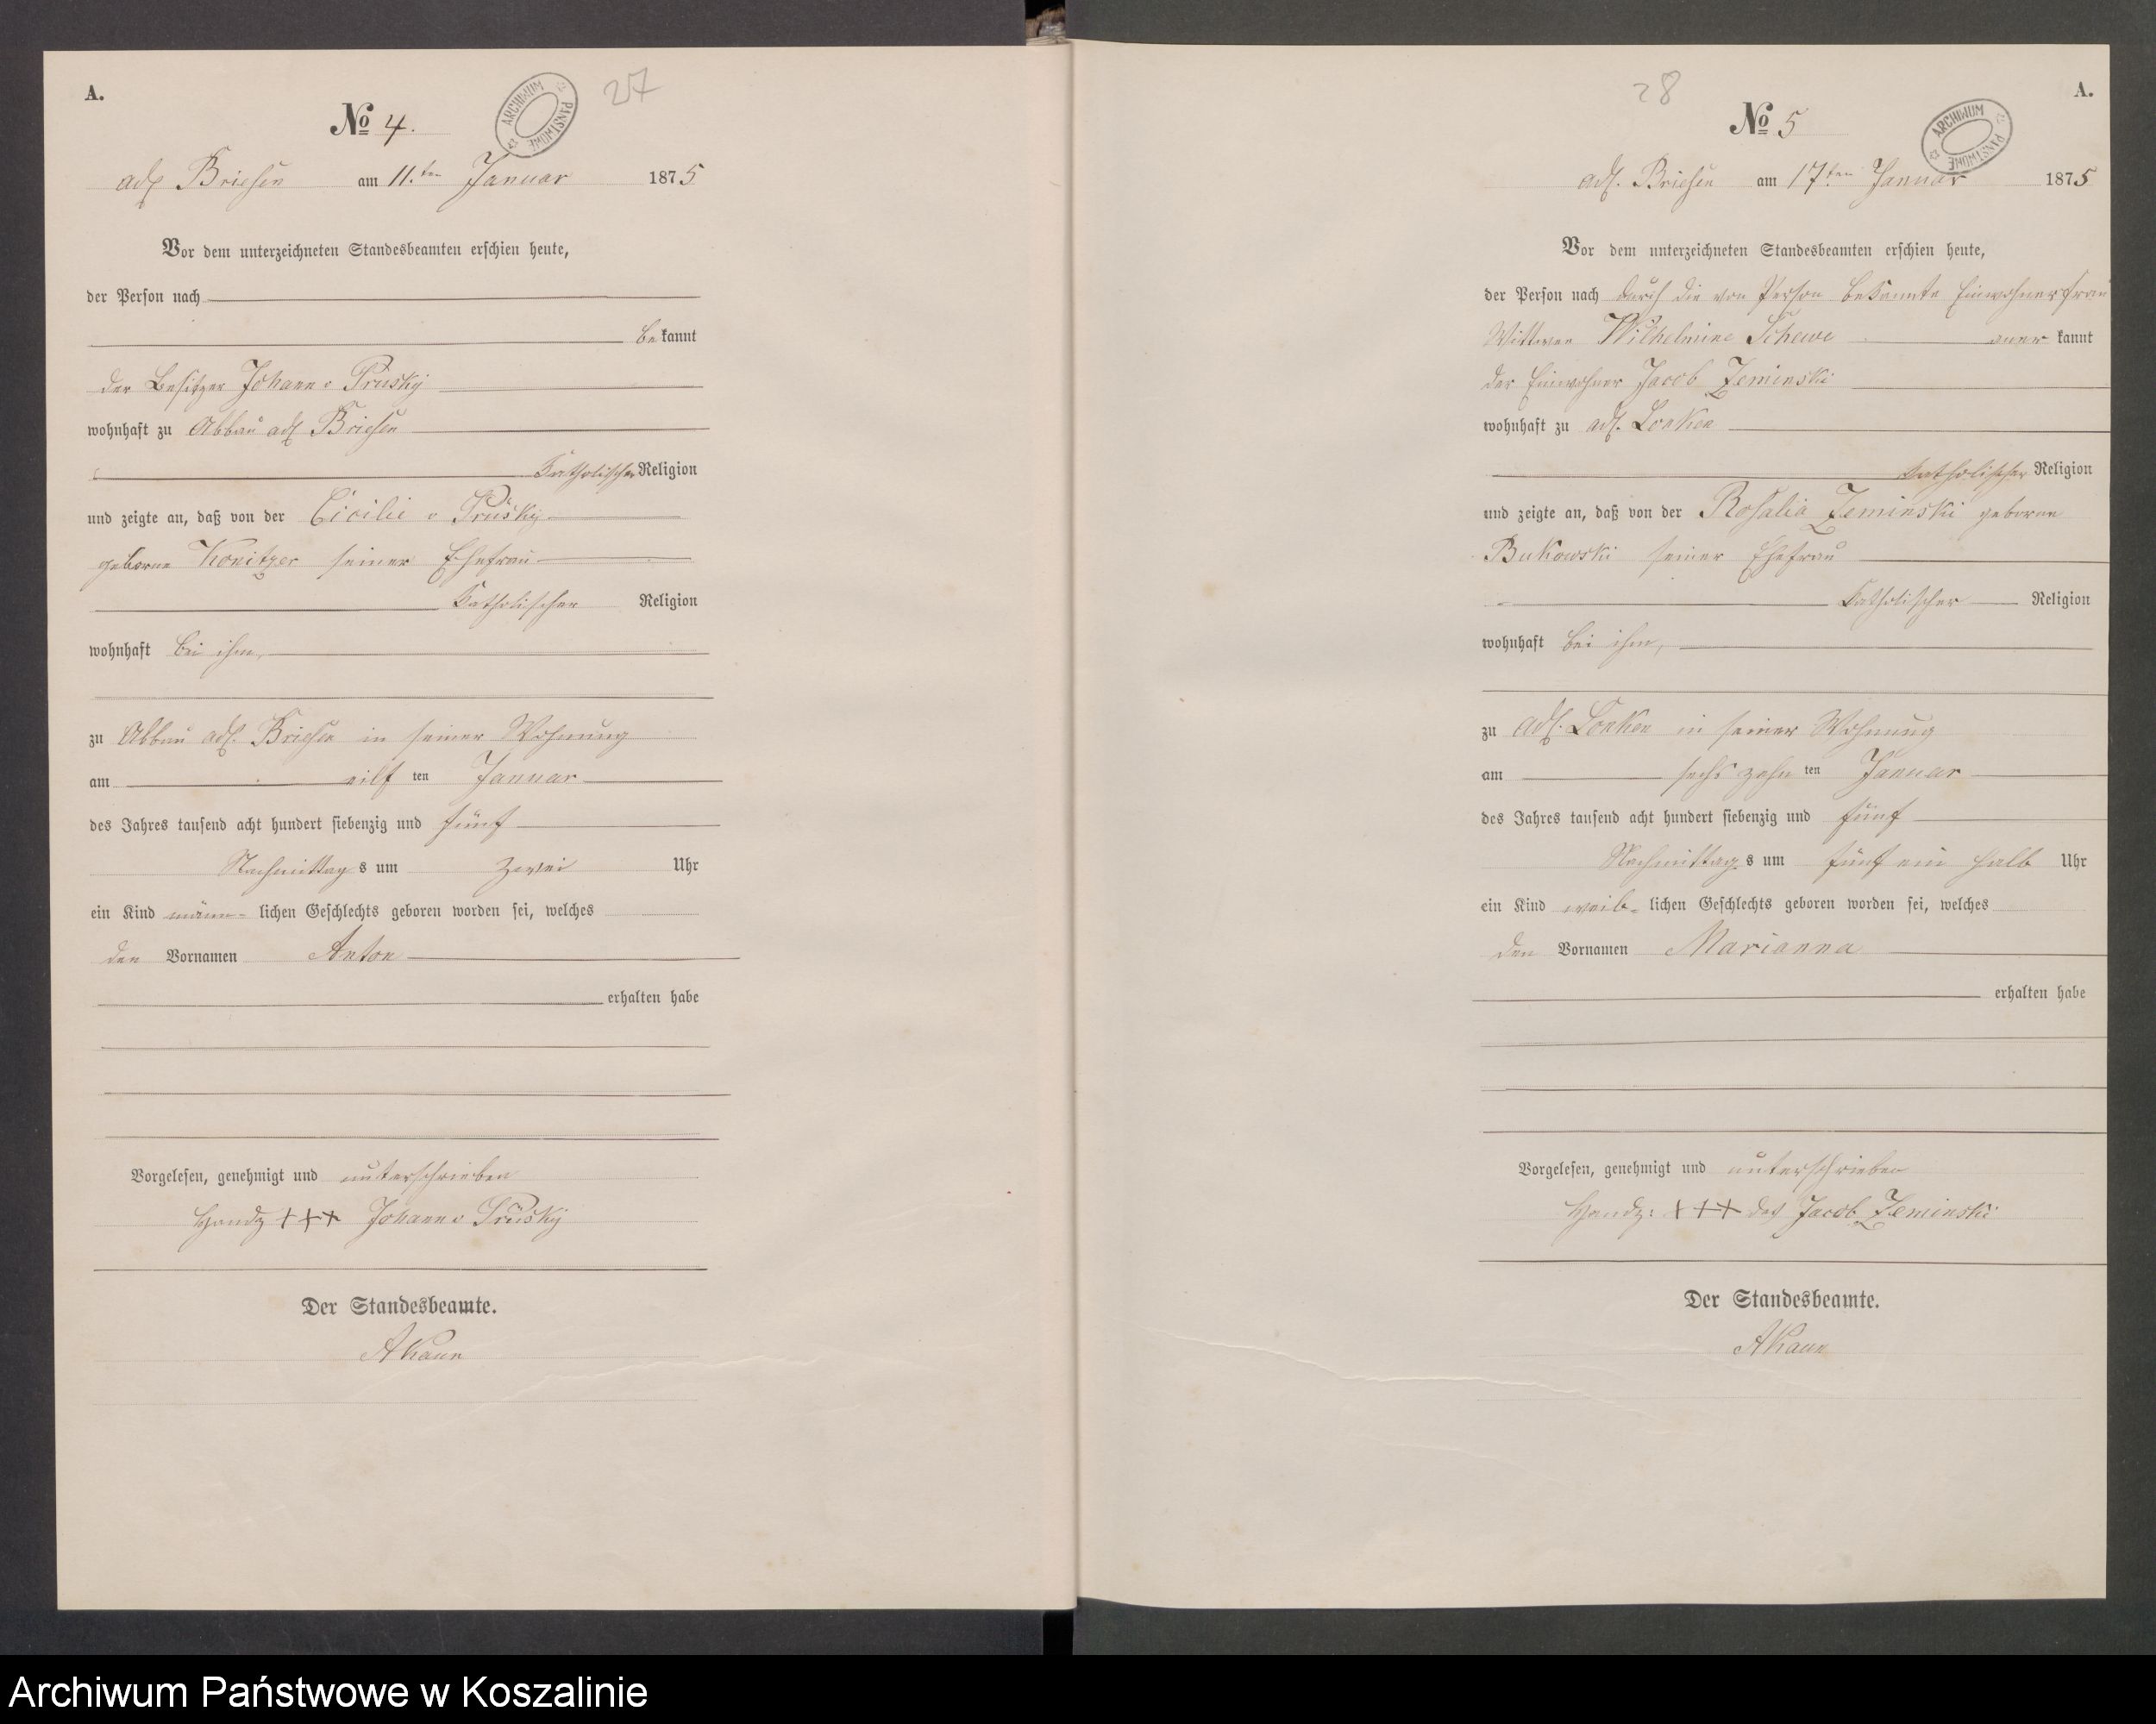 A.
27
№ 4.
ARCHIWUM PAŃSTWOWE
adl Briesen am 11.ten Januar 1875
Vor dem unterzeichneten Standesbeamten erschien heute,
der Person nach
bekannt
der Besitzer Johann v Prüsky
wohnhaft zu Abbau adl Briesen
Katholischer Religion
und zeigte an, daß von der Cicilie v Prüsky
geborne Konitzer seiner Ehefrau
Katholischer Religion
wohnhaft bei ihm,
zu Abbau adl. Briesen in seiner Wohnung
am eilf ten Januar
des Jahres tausend acht hundert siebenzig und fünf
Nachmittag s um zwei Uhr
ein Kind männ- lichen Geschlechts geboren worden sei, welches
den Vornamen Anton
erhalten habe
Vorgelesen, genehmigt und unterschrieben
Handz +++ Johann v Prüsky
Der Standesbeamte.
A
28
A.
№ 5
ARCHIWUM PAŃSTWOWE
adl. Briesen am 17ten Januar 1875
Vor dem unterzeichneten Standesbeamten erschien heute,
der Person nach durch die von Person bekannte Einwohnerfrau
Wittwe Wilhelmine Schewe aner kannt
der Einwohner Jacob Zeminski
wohnhaft zu adl. Lonken
Katholischer Religion
und zeigte an, daß von der Rosalia Zeminski geborne
Bukowski seiner Ehefrau
Katholischer Religion
wohnhaft bei ihm,
zu adl. Lonken in seiner Wohnung
am sechs zehn ten Januar
des Jahres tausend acht hundert siebenzig und fünf
Nachmittag s um fünf ein halb Uhr
ein Kind weib- lichen Geschlechts geboren worden sei, welches
den Vornamen Marianna
erhalten habe
Vorgelesen, genehmigt und unterschrieben
Handz: +++ des Jacob Zeminski
Der Standesbeamte.
A
Archiwum Państwowe w Koszalinie